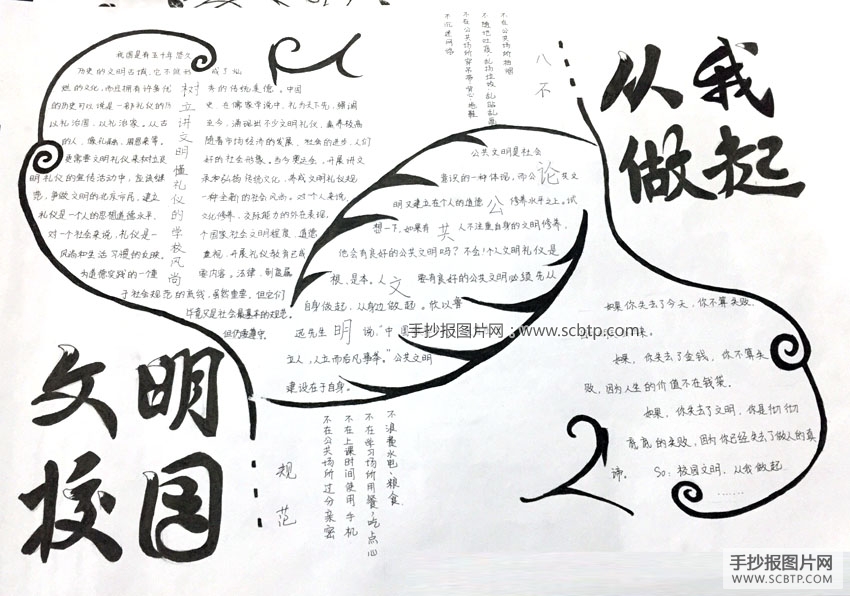 文明
校园
从我
做起
我国是有五千年悠久
历史的文明古域，它不但形成了灿
烂的文化，而且拥有许多优秀的传统美德。中国
的历史可以说是一部礼仪的历史，在儒家学说中，礼为天下先，强调
以礼治国，以礼治家。从古至今，涌现出不少文明礼仪，素养较高
的人，像孔融，周恩来等。随着市场经济的发展，社会的进步，人们
更需要文明礼仪来树立良好的社会形象。当今奥运会，开展讲文
明礼仪的宣传活动中，应该继承和弘扬传统文化，养成文明礼仪规
范，争做文明的北京市民，建立一种全新的社会风尚。对个人来说，
礼仪是一个人的思想道德水平，文化修养，交际能力的外在表现，
对一个社会来说，礼仪是一个国家社会文明程度，道德
风尚和生活习惯的反映。重视，开展礼仪教育已成
为道德实践的一个重要内容。法律，制度属
于社会规范的高线，虽然重要，但它们
毕竟只是社会最基本的规范。
树立讲文明懂礼仪的学校风尚
公共文明是社会
意识的一种体现，而公共文
明又建立在个人的道德修养水平之上。试
想一下，如果有人不注重自身的文明修养，
他会有良好的公共文明吗？不会！个人文明礼仪是
根，是本。人要有良好的公共文明必须先从
自身做起，从身边做起。
说："中国
立人，人立而后凡事举。"公共文明
建设在于自身。
论
公
共
文
明
八不
规范
不在公共场所抽烟
不随地吐痰乱扔垃圾乱贴乱画
不在公共场所穿吊带背心拖鞋
不沉迷网络
不浪费水电、粮食
不在学习场所用餐、吃点心
不在上课时间使用手机
不在公共场所过分亲密
如果你失去了今天，你不算失败，
如果，你失去了金钱，你不算失
败，因为人生的价值不在钱袋。
如果，你失去了文明，你是彻彻
底底的失败，因为你已经失去了做人的真
谛。 So：校园文明，从我做起
……
手抄报图片网：www.scbtp.com
手抄报图片网
WWW.SCBTP.COM